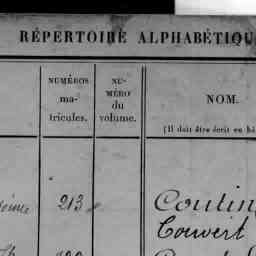 RÉPERTOIRE ALPHABÉTIQU
NUMÉROS
ma-
tricules.
NU-
MÉRO
du
volume.
NOM.
(Il doit être écrit en bâ
213
Couvert